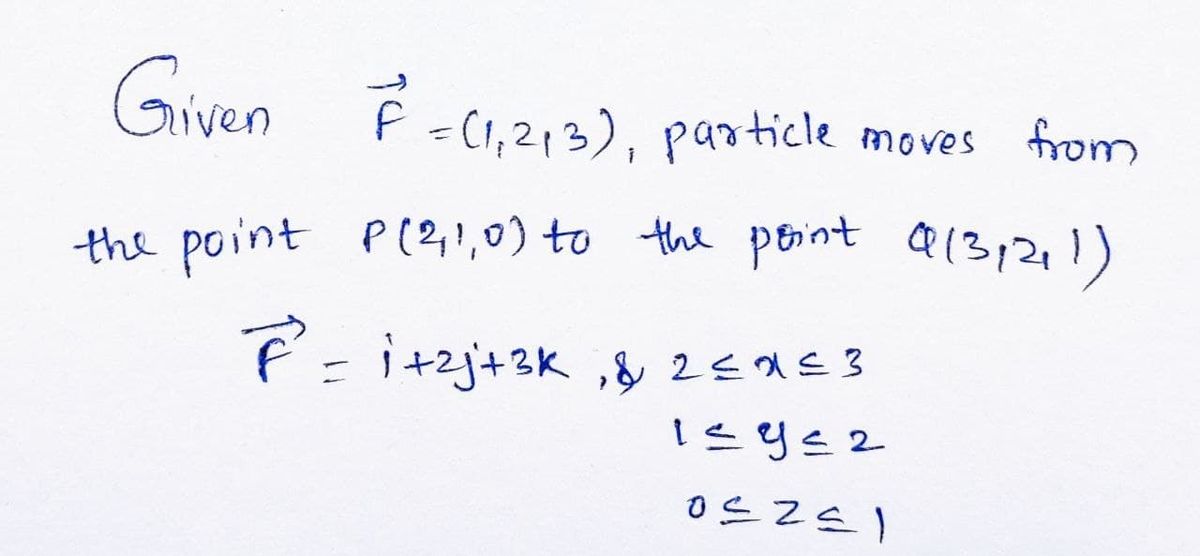 Given F⃗ = (1,2,3), particle moves from
the point P(2,1,0) to the point Q(3,2,1)
F⃗ = i+2j+3k , & 2 ≤ x ≤ 3
1 ≤ y ≤ 2
0 ≤ z ≤ 1